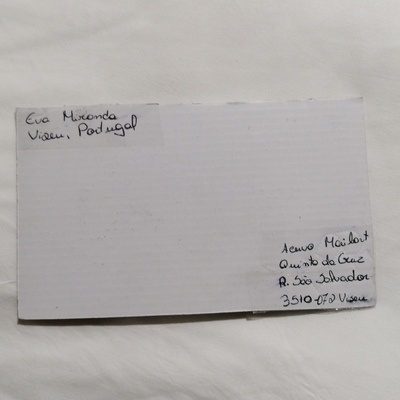 Eva Miranda
Viseu, Portugal
Acervo Mailart
Quinta da Cruz
R. São Salvador
3510-072 Viseu